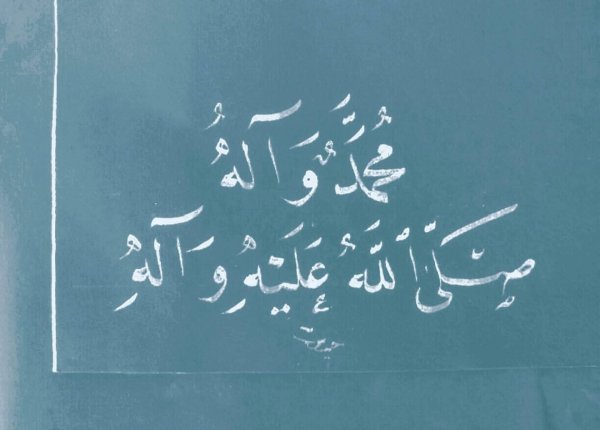 مُحَمَّدٌ وَآلُهُ
صَلَّى ٱللَّهُ عَلَيْهِ وَآلِهِ